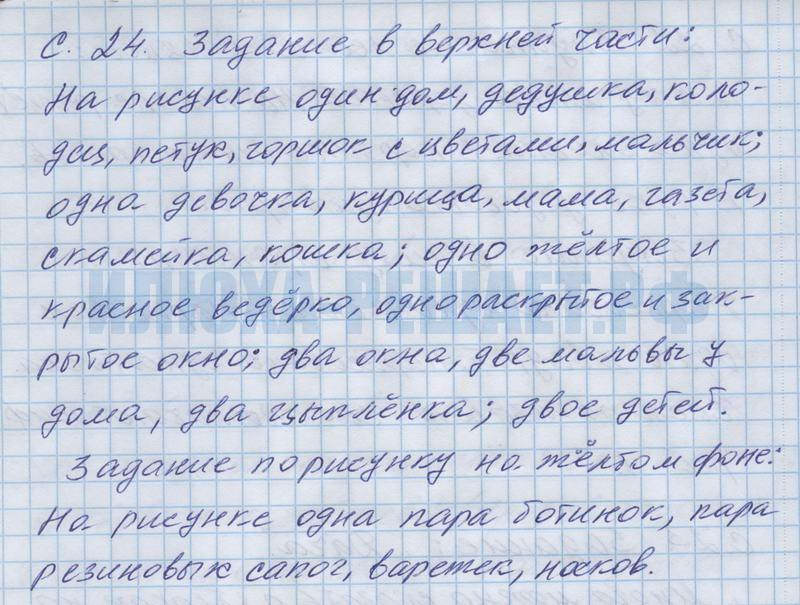 С. 24. Задание в верхней части:
На рисунке один дом, дедушка, коло-
дец, петух, горшок с цветами, мальчик;
одна девочка, курица, мама, газета,
скамейка, кошка; одно жёлтое и
красное ведёрко, одно раскрытое и зак-
рытое окно; два окна, две мальвы у
дома, два цыплёнка; двое детей.
Задание по рисунку на жёлтом фоне:
На рисунке одна пара ботинок, пара
резиновых сапог, варежек, носков.
ИЛЮХА-РЕШАЕТ.РФ